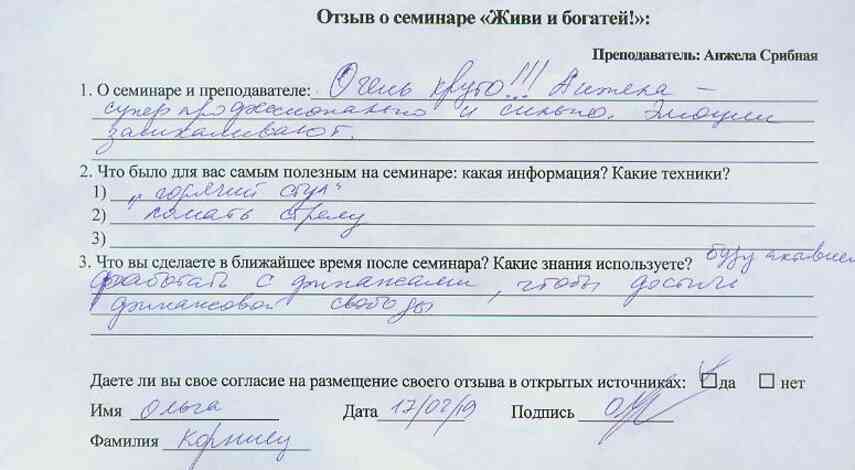 Отзыв о семинаре «Живи и богатей!»:
Преподаватель: Анжела Срибная
1. О семинаре и преподавателе: Очень круто!!! Анжела –
супер профессионально и сильно. Эмоции
зашкаливают.
2. Что было для вас самым полезным на семинаре: какая информация? Какие техники?
1) „горячий стул“
2) ломать стрелу
3)
3. Что вы сделаете в ближайшее время после семинара? Какие знания используете? буду активнее
работать с финансами, чтобы достичь
финансовой свободы
Даете ли вы свое согласие на размещение своего отзыва в открытых источниках: да нет
Имя Ольга Дата 17/02/19 Подпись
Фамилия Корниец